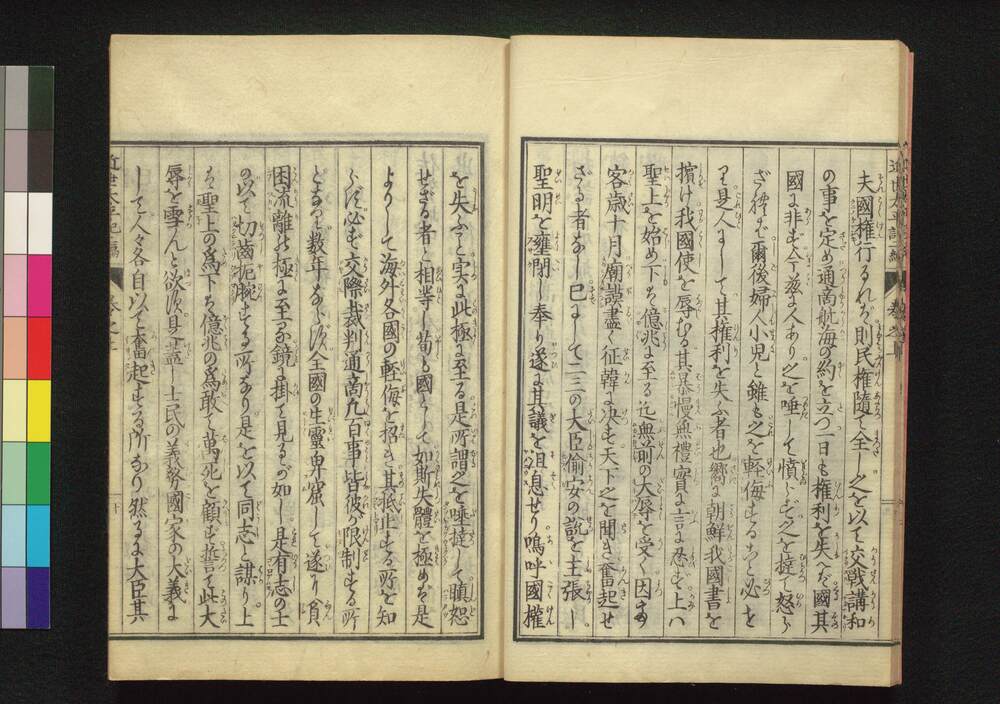 夫國權行るれば則民權隨て全し之を以て交戰講和
の事を定め通商航海の約を立つ一日も権利を失へば國其
國に非ず今茲に人あり之を唾して憤らず之を撻て怒ら
ざれば爾後婦人小児と雖も之を軽侮するや必せ
り是人にして其權利を失ふ者也嚮に朝鮮我國書を
擯け我國使を辱むる其暴慢無禮實に言に忍ず上ハ
聖上を始め下も億兆に至る迄無前の大辱を受く因て
客歳十月廟謨盡く征韓に决す天下之を聞き奮起せ
ざる者なし已にして二三の大臣偸安の説を主張し
聖明を壅閉し奉り遂に其議を沮息せり嗚呼國權
を失ふこと実に此極に至る是所謂之を唾撻して瞋怒
せざる者と相等し苟も國として如斯失體を極めば是
よりして海外各國の軽侮を招き其底止する所を知
らず必ず交際裁判通商凡百事皆彼が限制する所
となつて数年ならず全國の生靈卑屈して遂に貧
困流離の極に至る鏡に掛て見るが如し是有志の士
の以て切齒扼腕する所なり是を以て同志と謀り上
は聖上の爲下も億兆の爲敢て萬死を顧ず誓て此大
辱を雪んと欲す是蓋し士民の義務國家の大義に
して人々各自以て奮起する所なり然るに大臣其
近世太平記二編
巻之二
十